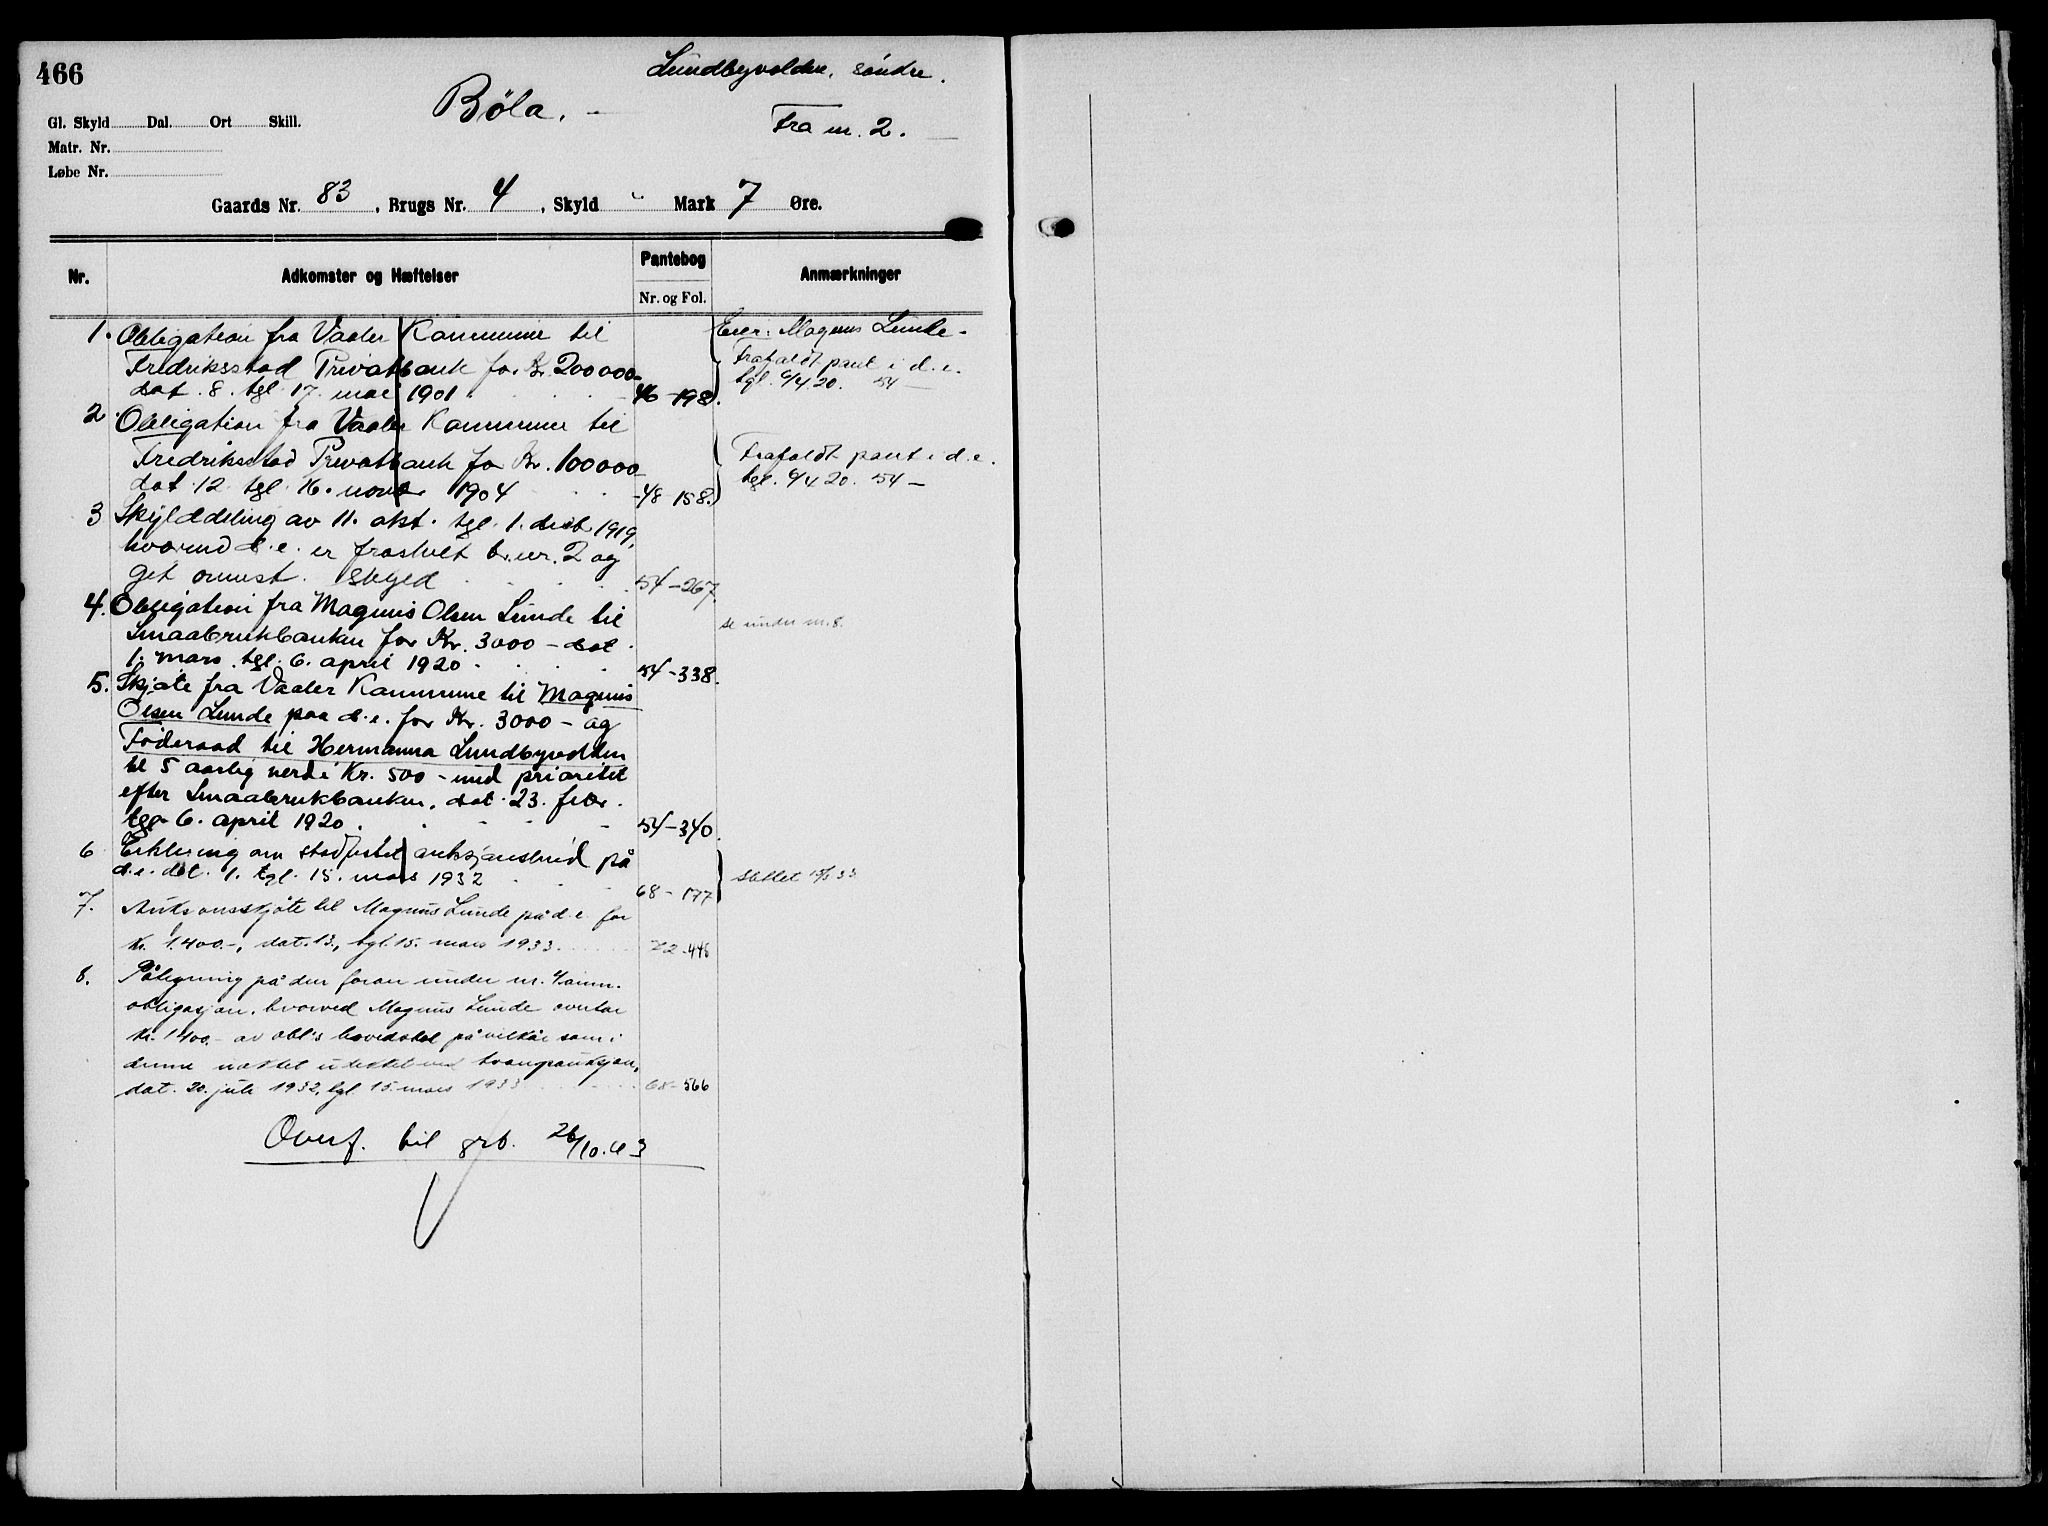 466
Lundbyvolden, söndre.
Böla. –
Fra nr. 2.
Gl. Skyld Dal. Ort Skill.
Matr. Nr.
Løbe Nr.
Gaards Nr. 83, Brugs Nr. 4, Skyld " Mark 7 Øre.
Nr. Adkomster og Hæftelser Pantebog Anmærkninger
Nr. og Fol.
1. Obligation fra Vaaler Kommune til Eier: Magnus Lunde.
Fredriksstad Privatbank for Kr. 200000– Frafaldt pant i d.e.
dat. 8. tgl. 17. mai 1901. 46–198. tgl. 6/4 20. 54 –
2. Obligation fra Vaaler Kommune til
Fredriksstad Privatbank for Kr. 100000– Frafaldt pant i d.e.
dat. 12. tgl. 16. novbr 1904 48–158. tgl. 6/4 20. 54 –
3 Skylddeling av 11. okt. tgl. 1. decb 1919,
hvorved d.e. er fraskilt br.nr. 2 og
git anmst. skyld 54–267.
4. Obligation fra Magnus Olsen Lunde til
Smaabrukbanken for Kr. 3000 – dat. se under nr. 8.
1. mars tgl. 6. april 1920 54–338.
5. Skjøte fra Vaaler Kommune til Magnus
Olsen Lunde paa d.e. for Kr. 3000 – og
Föderaad til Hermanna Lundbyvolden
til 5 aarlig verdi Kr. 500 – med prioritet
efter Smaabrukbanken, dat. 23. febr.
tgl. 6. april 1920. 54–340.
6 Erklering om stadfestet auksjonsbud på
d.e. dat. 1. tgl. 15. mars 1932 68–177 slettet 15/3 33
7. Auksjonsskjöte til Magnus Lunde på d.e. for
Kr. 1.400.–, dat. 13., tgl. 15. mars 1933. 72–446
8. Påtegning på den foran under nr. 4 anm.
obligasjon, hvorved Magnus Lunde overtar
Kr. 1400.– av obl's hovedstol på vilkår som i
denne nevnt ved tvangsauksjon,
dat. 20. juli 1932, tgl. 15. mars 1933 68–566
Overf. til grb. 26/10.43